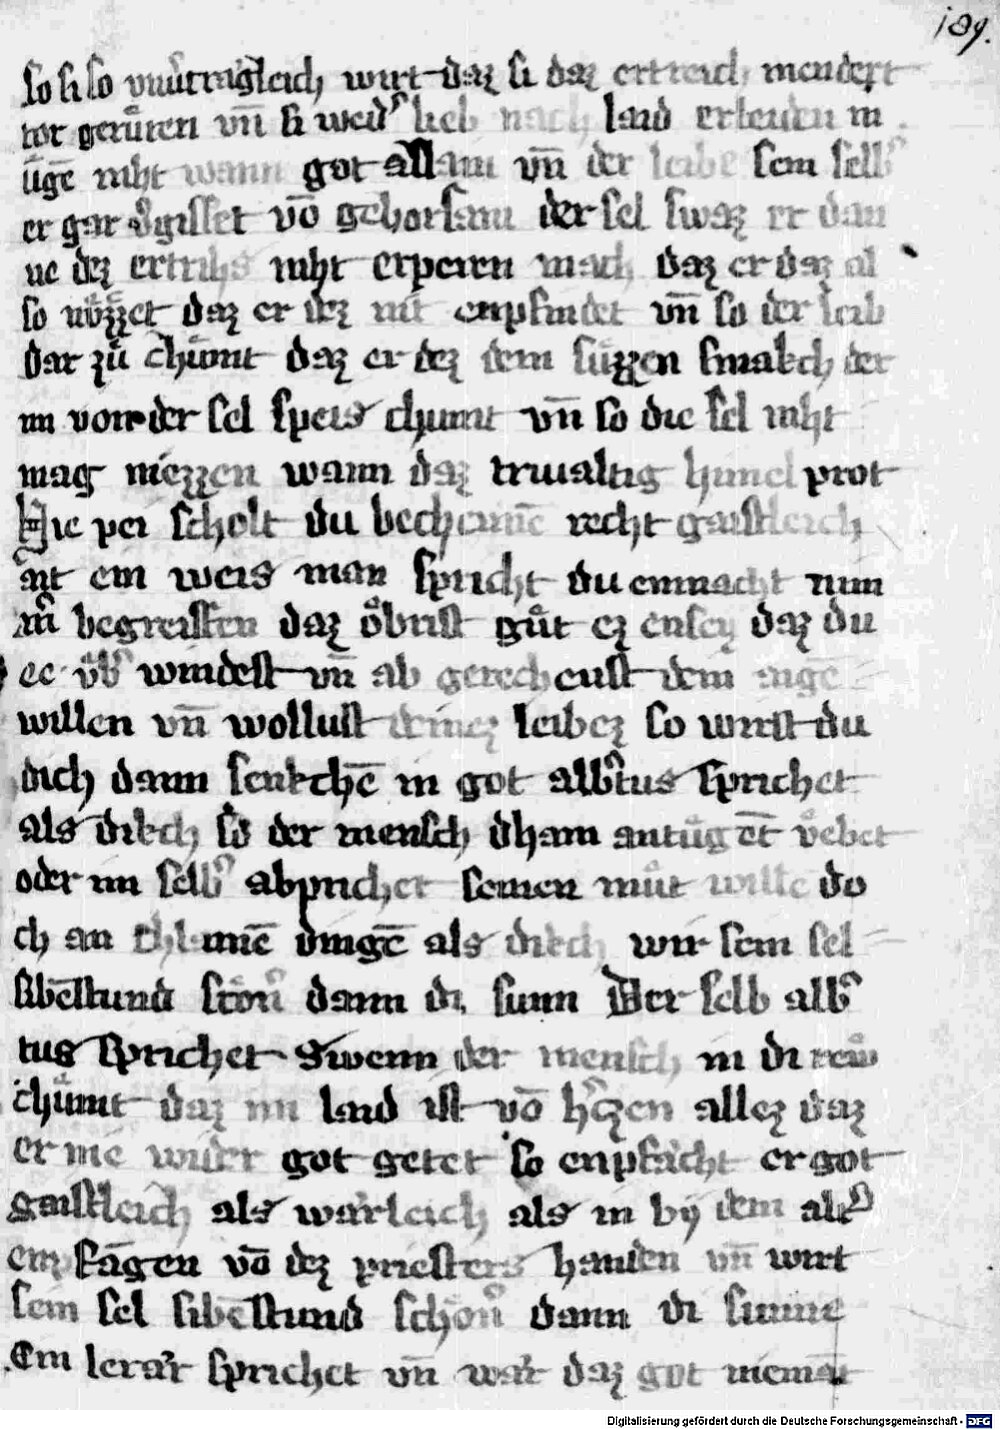 189.
so si so vnuͤtraͤgleich wirt daz si daz ertreich mendert
tot geruͤren vn̄ si wedˀ lieb nach laid erleuden m
uͤgē niht wann got allain vn̄ der leibe sein selbˀ
er gar vˀgisset vō gehorsam der sel swaz er dan
ne dez ertrihs niht enperen mach daz er daz al
so nuͤzzet daz er dez nit enpfindet vn̄ so der leib
dar zuͤ chuͤmt daz er dez dem suͤzzen smakch der
im von der sel speis chumt vn̄ so die sel niht
mag niezzen wann daz trivaltig himel prot
Hie pei scholt du bechennē recht gaistleich
aͤit ein weis man spricht du enmacht nim
mˀ begreiffen daz oͤbrist guͤt ez ensey daz du
ee vͤbˀ windest vn̄ ab gerechenst dem aigē
willen vn̄ wollust deinez leibez so wirst du
dich dann senkchē in got albˀtus sprichet
als dikch so der mensch dhain antuͤgēt vͤebet
oder im selbˀ abprichet seinen muͤt wille do
ch an chlainē dingē als dikch wir sein sel
sibēstund schoͤnˀ dann di sunn Der selb albˀ
tus sprichet Swenn der mensch in di rew
chuͤmt daz im laid ist vō hˀczen allez daz
er me wider got getet so enpfaͤcht er got
gaistleich als waͤrleich als in by dem altˀ
empfāgen vō dez priesters handen vn̄ wirt
sein sel sibēstund schoͤnˀ dann di sunne
Ein leraͤr sprichet vn̄ waͤr daz got niemāt
Digitalisierung gefördert durch die Deutsche Forschungsgemeinschaft - DFG